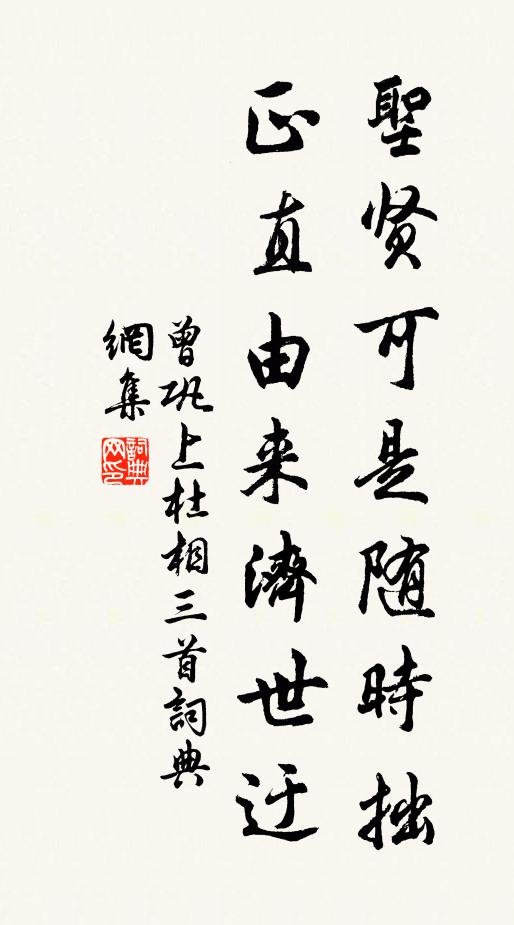 聖贤可是随時拙
正直由来濟世迂
曾巩上杜相三首詞典
網集
詞典網印